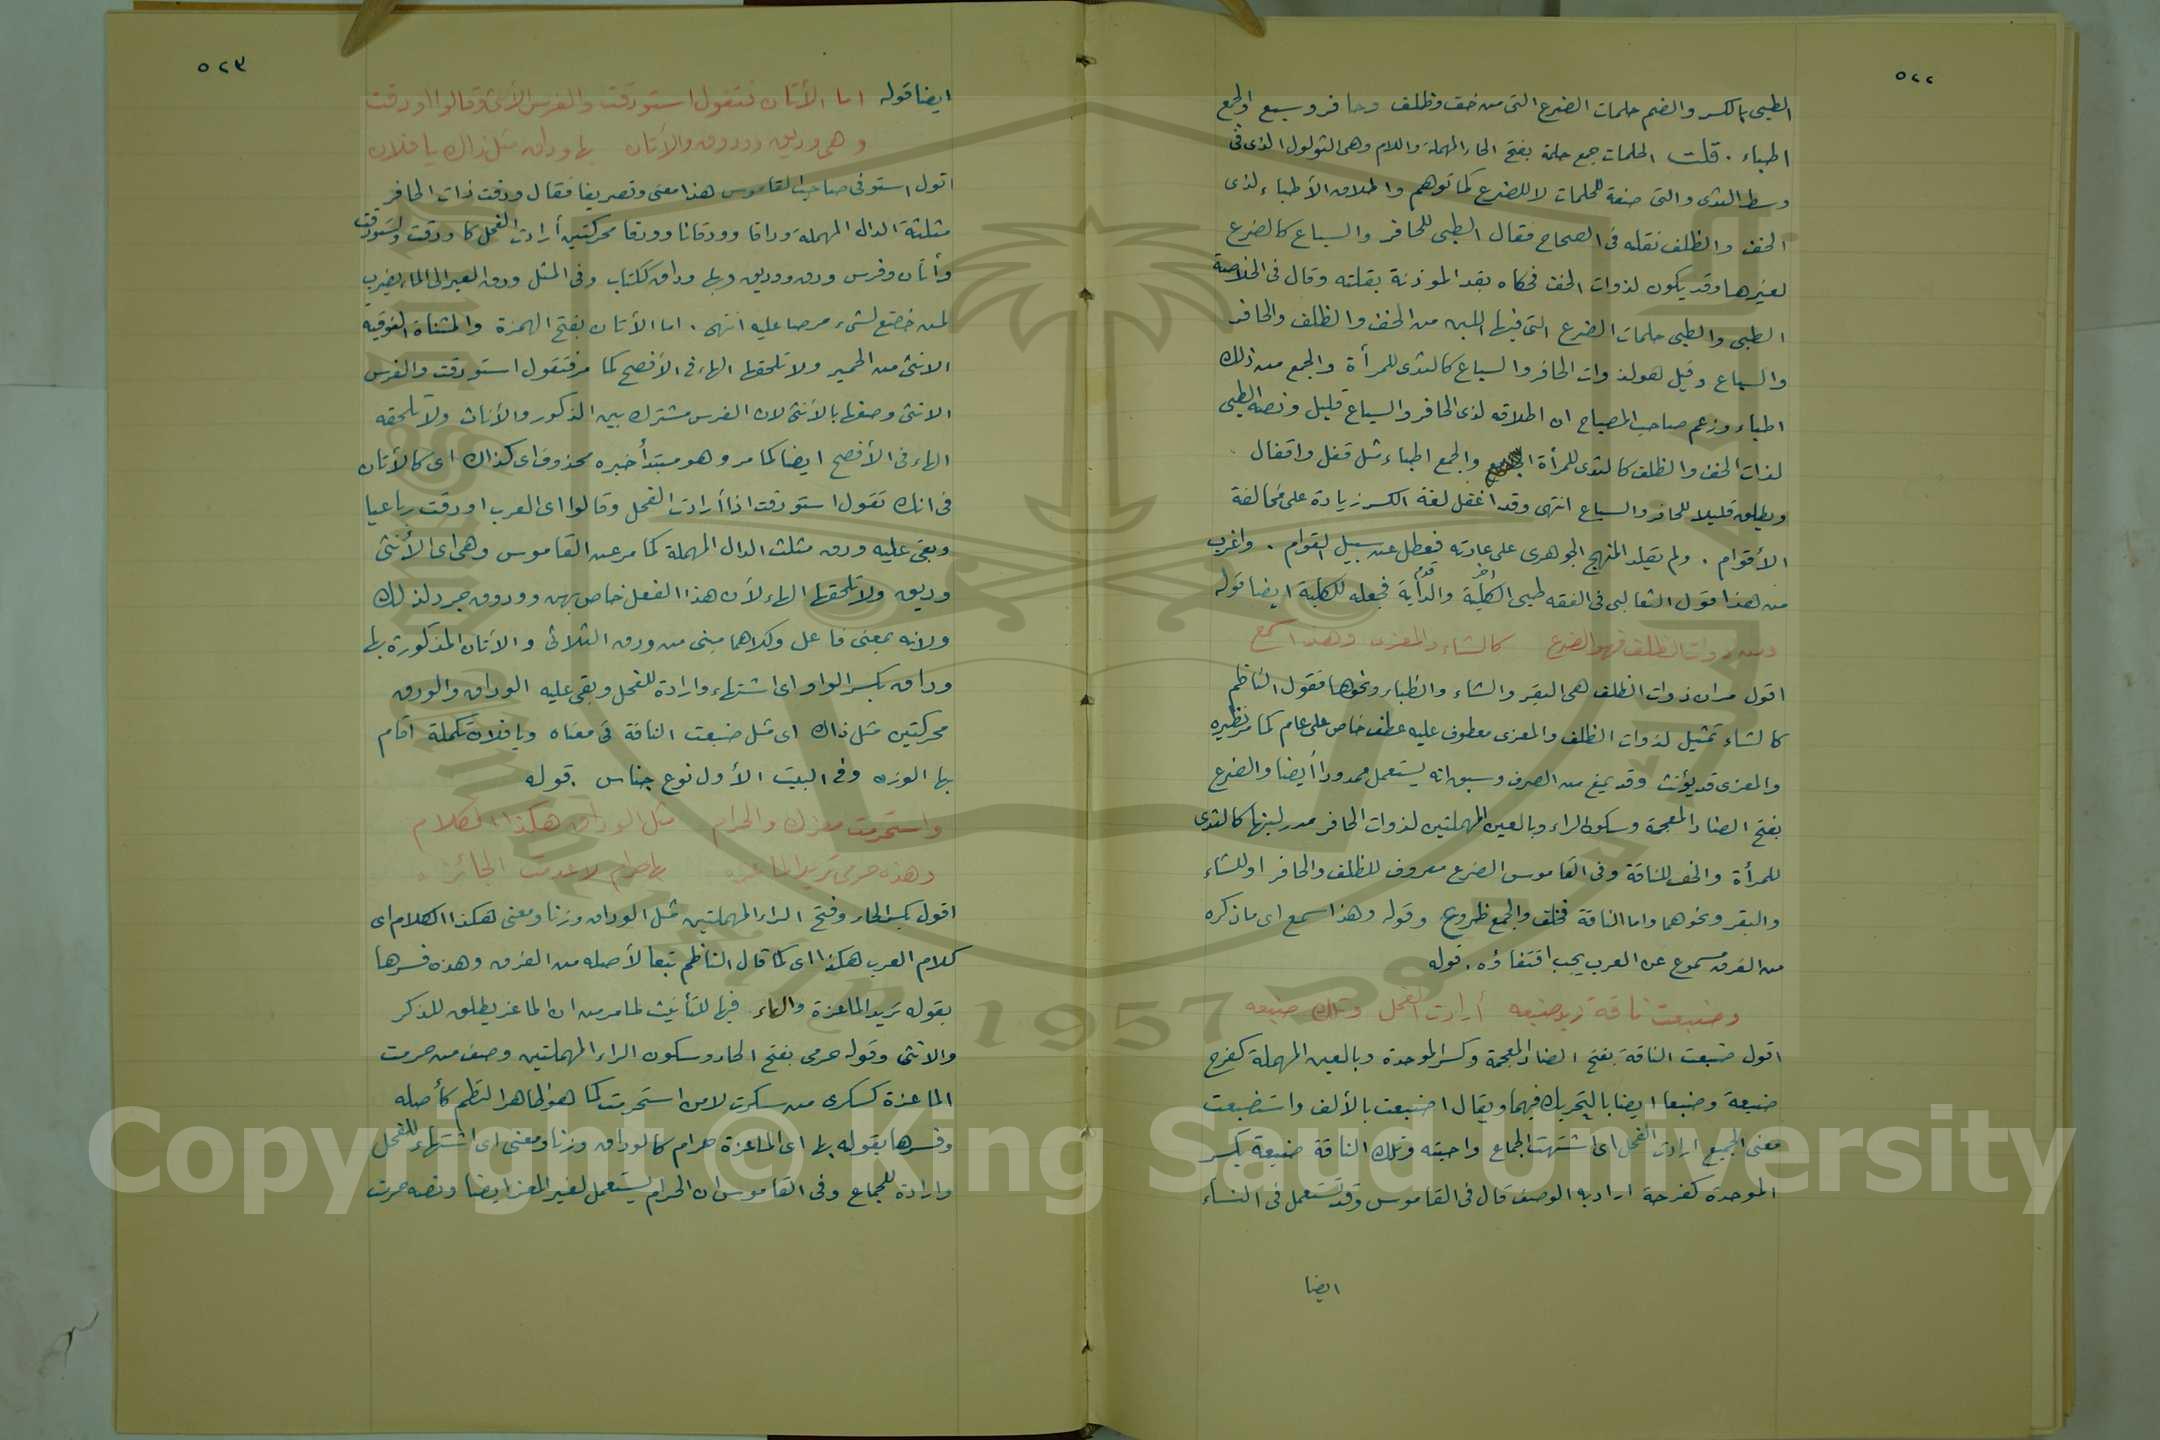 ٥٢٢
الطبى بالكسر والضم حلمات الضرع التى من خف وظلف وحافر وسبع والجمع
اطباء . قلت الحلمات جمع حلمة بفتح الحاء المهملة واللام وهى الثولول الذى فى
وسط الثدى والتى صفة للحلمات لا للضرع كما توهم واطلاق الأطباء لذى
الخف والظلف نقله فى الصحاح فقال الطبى للحافر والسباع كالضرع
لغيرها وقد يكون لذوات الخف فحكاه بقد الموذنة بقلته وقال فى الخلاصة
الطبى والطبى حلمات الضرع التى فيها اللبن من الخف والظلف والحافر
والسباع وقيل هو لذوات الحافر والسباع كالثدى للمرأة والجمع من ذلك
اطباء وزعم صاحب المصباح ان اطلاقه لذى الحافر والسباع قليل ونصه الطبى
لذات الخف والظلف كالثدى للمرأة والجمع اطباء مثل قفل واقفال
ويطلق قليلا للحافر والسباع انتهى وقد اغفل لغة الكسر زيادة على مخالفة
الأقوام . ولم يقلد المنهج الجوهرى على عادته فعطل عن سبيل القوام . واغرب
من هذا قول الثعالبى فى الفقه طبى الكلبة والدابة فجعله للكلبة ايضا قوله
ومن ذوات الظلف فهو الضرع كالشاء والمعزى وهذا سمع
اقول مر ان ذوات الظلف هى البقر والشاء والظباء ونحوها فقول الناظم
كالشاء تمثيل لذوات الظلف والمعزى معطوف عليه عطف خاص على عام كما مر نظيره
والمعزى قد يؤنث وقد يمنع من الصرف وسبق انه يستعمل ممدودا أيضا والضرع
بفتح الضاد المعجمة وسكون الراء وبالعين المهملتين لذوات الحافر مدر لبنها كالثدى
للمرأة والخف للناقة وفى القاموس الضرع معروف للظلف والحافر او للشاء
والبقر ونحوهما واما الناقة فخلف والجمع ضروع وقوله وهذا سمع اى ما ذكره
من الفرق مسموع عن العرب يجب اقتفاؤه . قوله
وضبعت ناقة زيد ضبعه أرادت الفحل وتلك ضبعه
اقول ضبعت الناقة بفتح الضاد المعجمة وكسر الموحدة وبالعين المهملة كفرح
ضبعة وضبعا ايضا بالتحريك فيهما ويقال اضبعت بالألف واستضبعت
معنى الجميع ارادت الفحل اى اشتهت الجماع واحبته وتلك الناقة ضبعة بكسر
الموحدة كفرحة اراد به الوصف قال فى القاموس وقد تستعمل فى النساء
ايضا
٥٢٣
ايضا قوله اما الأتان فتقول استودقت والفرس الأنثى وقالوا اودقت
وهى وديق وودوق والأتان بها وداق مثل ذاك يا فلان
اقول استوفى صاحب القاموس هذا معنى وتصريفا فقال ودقت ذات الحافر
مثلثة الدال المهملة وداقا وودقانا وودقا محركتين أرادت الفحل كاودقت واستودقت
وأتان وفرس ودوق ووديق وبها وداق ككتاب وفى المثل ودق العير الى الماء يضرب
لمن خضع لشىء حرصا عليه انتهى . اما الأتان بفتح الهمزة والمثناة الفوقية
الانثى من الحمير ولا تلحقها الهاء فى الأفصح كما مر فتقول استودقت والفرس
الانثى وصفها بالأنثى لان الفرس مشترك بين الذكور والأناث ولا تلحقه
الهاء فى الأفصح ايضا كما مر وهو مبتدأ خبره محذوف اى كذلك اى كالأتان
فى انك تقول استودقت اذا أرادت الفحل وقالوا اى العرب اودقت رباعيا
وبقى عليه ودق مثلث الدال المهملة كما مر عن القاموس وهى اى الأنثى
وديق ولا تلحقها الهاء لأن هذا الفعل خاص بهن وودوق جرد لذلك
ولانه بمعنى فاعل وكلاهما مبنى من ودق الثلاثى والأتان المذكورة بها
وداق بكسر الواو اى اشتهاء وارادة للفحل وبقى عليه الوداق والودق
محركتين مثل ذاك اى مثل ضبعت الناقة فى معناه ويا فلان تكملة اقام
بها الوزن وفى البيت الأول نوع جناس . قوله
واستحرمت معزك والحرام مثل الوداق هكذا الكلام
وهذه حرمى تريد الماعزه بها حرام لا عدمت الجائزه
اقول بكسر الحاء وفتح الراء المهملتين مثل الوداق وزنا ومعنى هكذا الكلام اى
كلام العرب هكذا اى كما قال الناظم تبعا لأصله من الفرق وهذه فسرها
بقوله تريد الماعزة والهاء فيها للتأنيث لما مر من ان الماعز يطلق للذكر
والانثى وقوله حرمى بفتح الحاء وسكون الراء المهملتين وصف من حرمت
الماعزة كسكرى من سكرت لا من استحرمت كما هو ظاهر النظم كأصله
وفسرها بقوله بها اى الماعزة حرام كالوداق وزنا ومعنى اى اشتهاء للفحل
وارادة للجماع وفى القاموس ان الحرام يستعمل لغير المعز ايضا ونصه حرمت
1957
Copyright © King Saud University